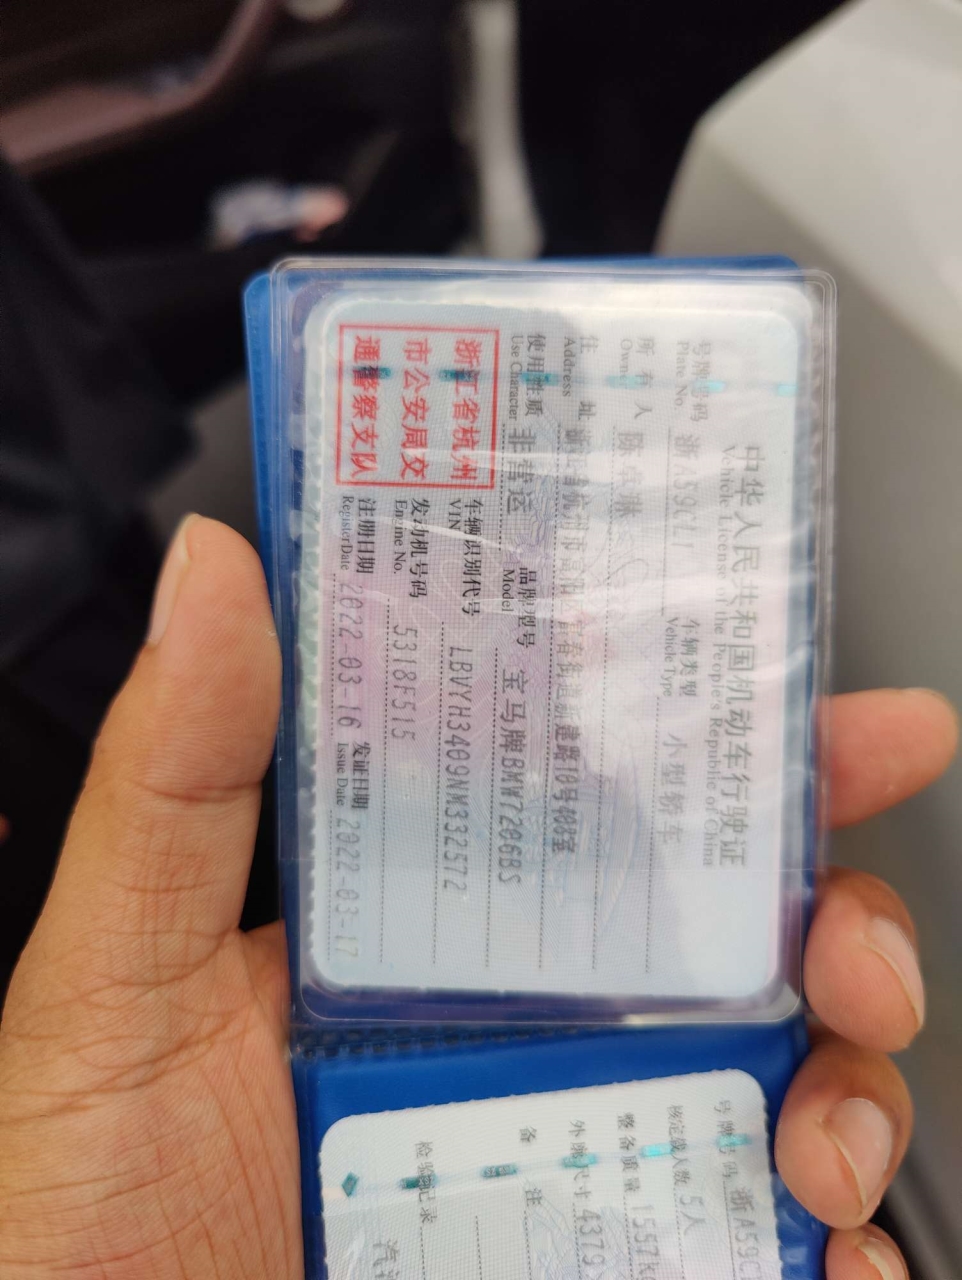 中华人民共和国机动车行驶证
Vehicle License of the People's Republic of China
号牌号码 浙A59CL1 车辆类型 小型轿车
Plate No. Vehicle Type
所有人 陈卓琳
Owner
住址 浙江省杭州市富阳区富春街道新建路10号408室
Address
使用性质 非营运 品牌型号 宝马牌BMW7206BS
Use Character Model
浙江省杭州
市公安局交
通警察支队
车辆识别代号 LBVYH3409NM332572
VIN
发动机号码 5318F515
Engine No.
注册日期 2022-03-16 发证日期 2022-03-17
Register Date Issue Date
号牌号码 浙A59C
核定载人数 5人
整备质量 1557kg
外廓尺寸 4379
备注
检验记录